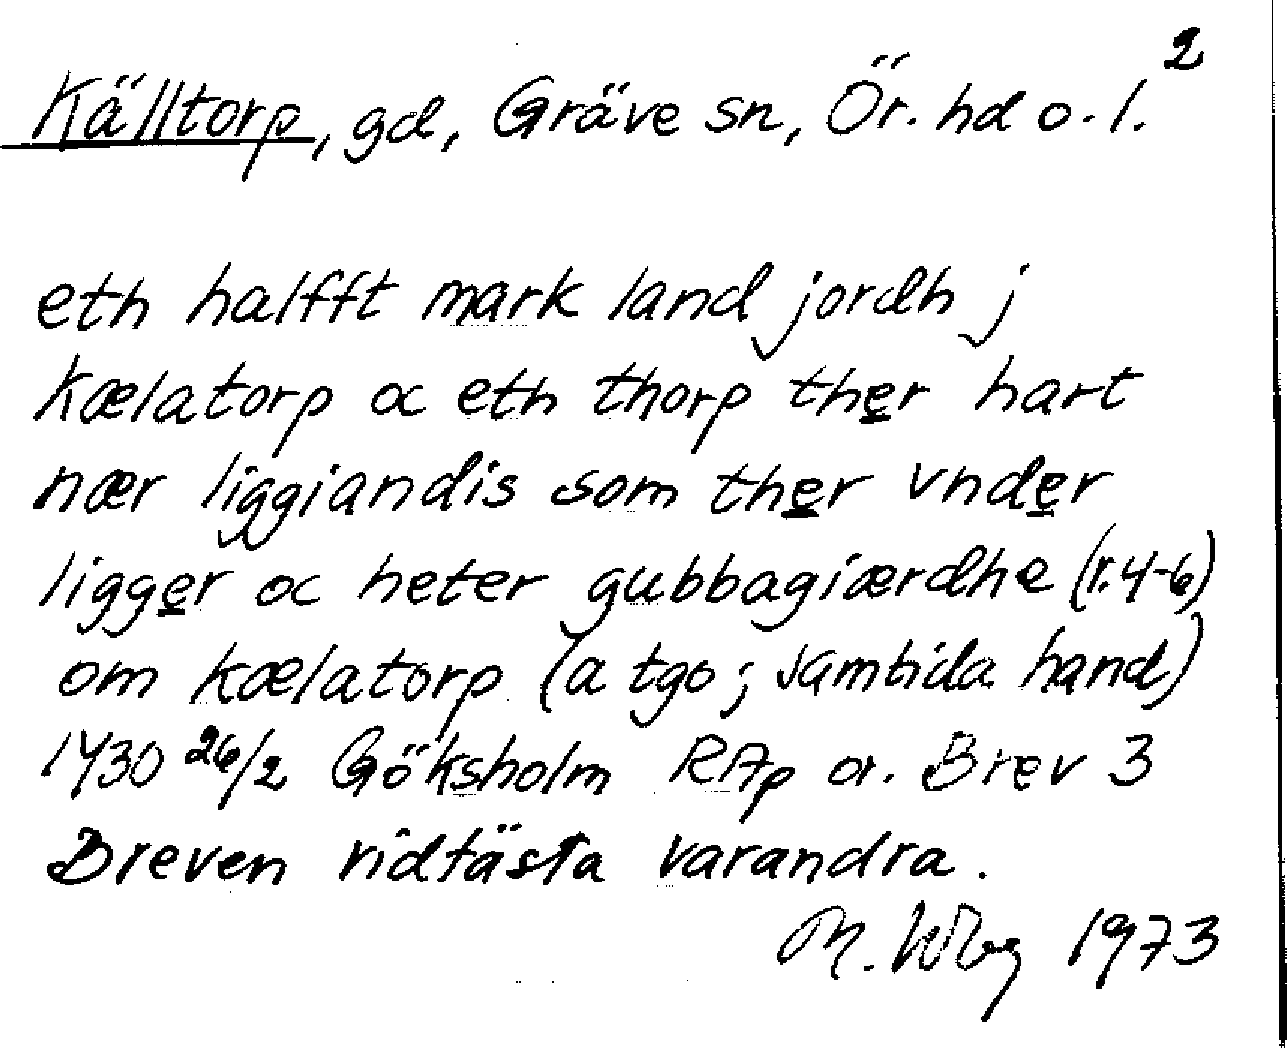 2
Källtorp, gd, Gräve sn, Ör. hd o. l.
eth halfft mark land jordh j
kælatorp oc eth thorp ther hart
nær liggiandis som ther vnder
ligger oc heter gubbagiærdhe (r. 4-6)
om kælatorp (a tgo; samtida hand)
1430 26/2 Göksholm RAp or. Brev 3
Breven vidfästa varandra.
M. 1973